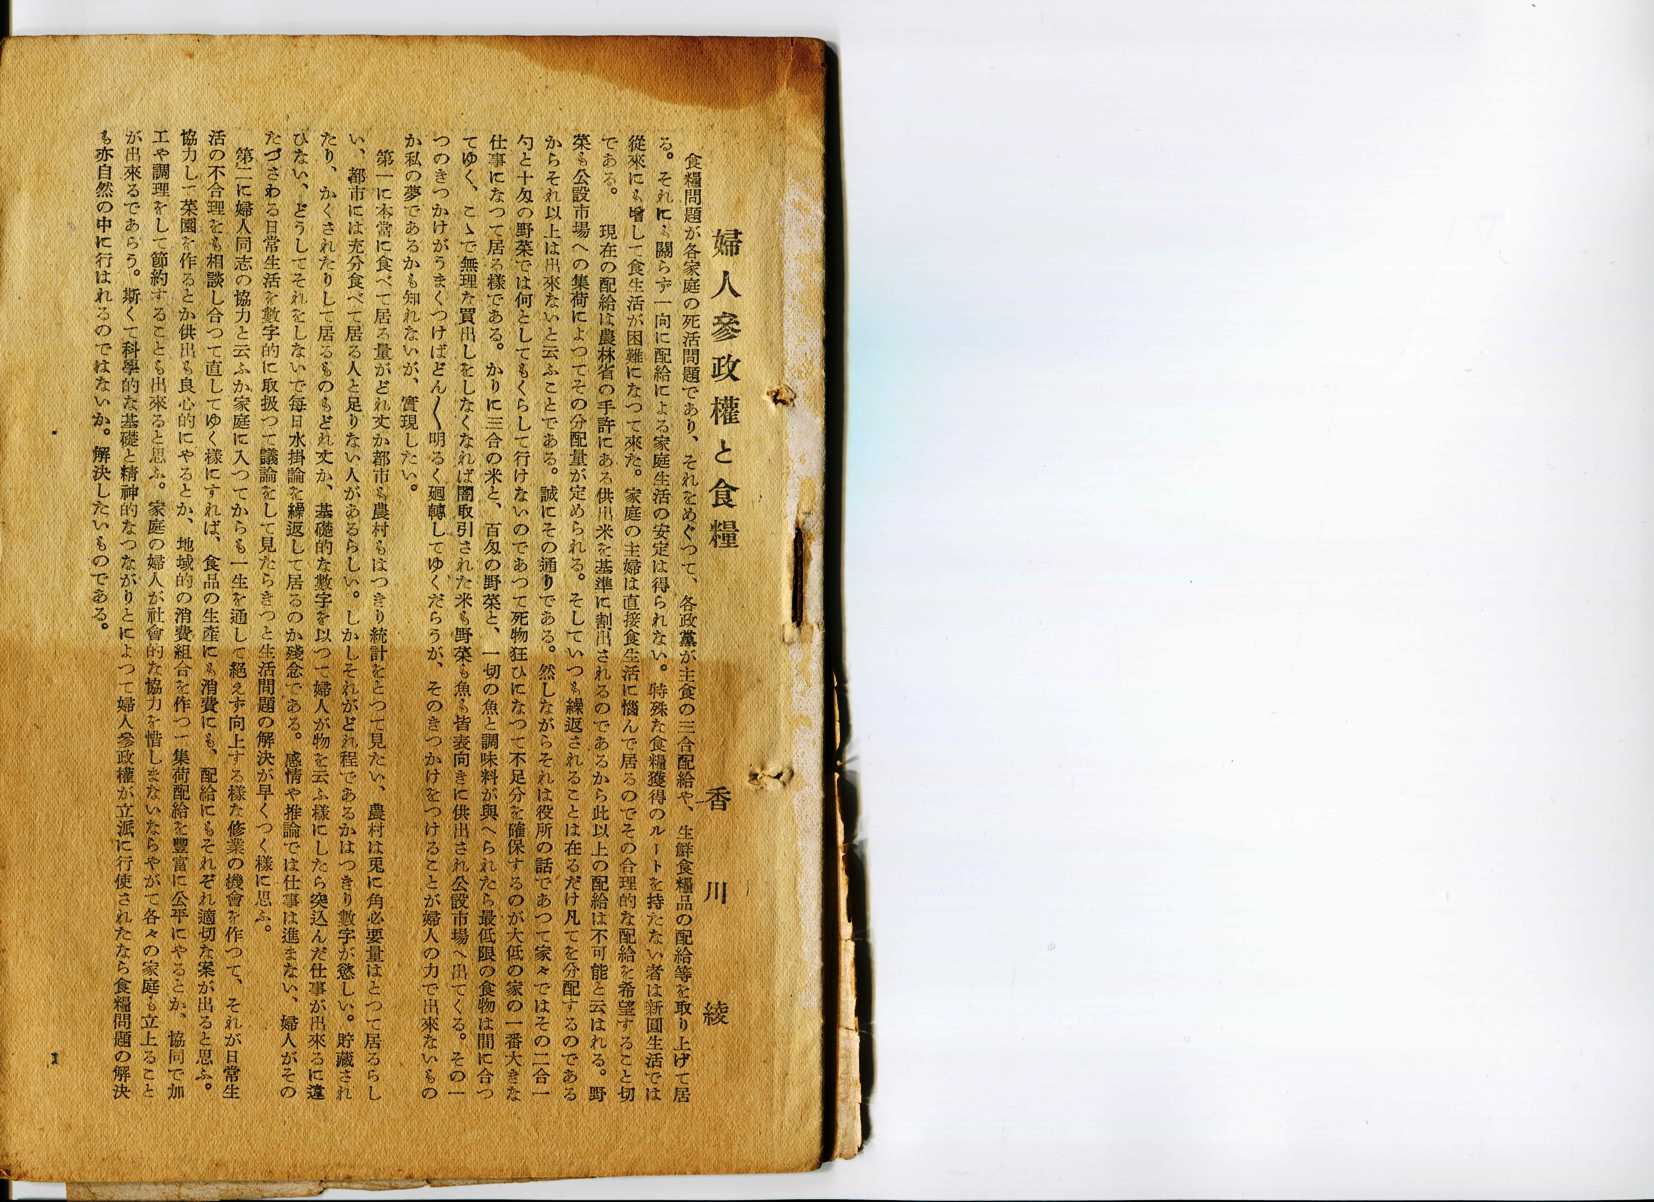 婦人參政權と食糧
香川綾
食糧問題が各家庭の死活問題であり、それをめぐつて、各政黨が主食の三合配給や、生鮮食糧品の配給等を取り上げて居
る。それにも關らず一向に配給による家庭生活の安定は得られない。特殊な食糧獲得のルートを持たない者は新圓生活では
從來にも增して食生活が困難になつて來た。家庭の主婦は直接食生活に惱んで居るのでその合理的な配給を希望すること切
である。　現在の配給は農林省の手許にある供出米を基準に割出されるのであるから此以上の配給は不可能と云はれる。野
菜も公設市場への集荷によつてその分配量が定められる。そしていつも繰返されることは在るだけ凡てを分配するのである
からそれ以上は出來ないと云ふことである。誠にその通りである。然しながらそれは役所の話であつて家々ではその二合一
勺と十匁の野菜では何としてもくらして行けないのであつて死物狂ひになつて不足分を確保するのが大低の家の一番大きな
仕事になつて居る樣である。かりに三合の米と、百匁の野菜と、一切の魚と調味料が與へられたら最低限の食物は間に合つ
てゆく、こゝで無理な買出しをしなくなれば闇取引された米も野菜も魚も皆表向きに供出され公設市場へ出てくる。その一
つのきつかけがうまくつけばどん〳〵明るく廻轉してゆくだらうが、そのきつかけをつけることが婦人の力で出來ないもの
か私の夢であるかも知れないが、實現したい。
第一に本當に食べて居る量がどれ丈か都市も農村もはつきり統計をとつて見たい、農村は兎に角必要量はとつて居るらし
い、都市には充分食べて居る人と足りない人があるらしい。しかしそれがどれ程であるかはつきり數字が慾しい。貯藏され
たり、かくされたりして居るものもどれ丈か、基礎的な數字を以つて婦人が物を云ふ樣にしたら突込んだ仕事が出來るに違
ひない、どうしてそれをしないで每日水掛論を繰返して居るのか殘念である。感情や推論では仕事は進まない、婦人がその
たづさわる日常生活を數字的に取扱つて議論をして見たらきつと生活問題の解決が早くつく樣に思ふ。
第二に婦人同志の協力と云ふか家庭に入つてからも一生を通して絕えず向上する樣な修業の機會を作つて、それが日常生
活の不合理をも相談し合つて直してゆく樣にすれば、食品の生產にも消費にも、配給にもそれぞれ適切な案が出ると思ふ。
協力して菜園を作るとか供出も良心的にやるとか、地域的の消費組合を作つて集荷配給を豐富に公平にやるとか、協同で加
工や調理をして節約することも出來ると思ふ。家庭の婦人が社會的な協力を惜しまないならやがて各々の家庭も立上ること
が出來るであらう。斯くて科學的な基礎と精神的なつながりとによつて婦人參政權が立派に行使されたなら食糧問題の解決
も亦自然の中に行はれるのではないか。解決したいものである。
1